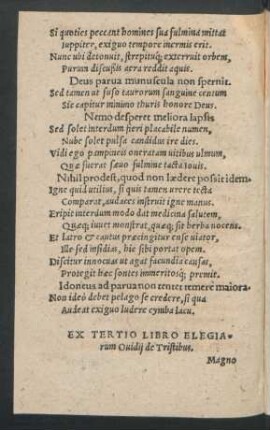 Si quoties peccant homines sua fulmina mittat
Iuppiter, exiguo tempore inermis erit.
Nunc ubi detonuit, strepituq́; exterruit orbem,
Purum discußis aëra reddit aquis.
Deus parua munuscula non spernit.
Sed tamen ut fuso taurorum sanguine centum
Sic capitur minimo thuris honore Deus.
Nemo desperet meliora lapsis
Sed solet interdum fieri placabile numen,
Nube solet pulsa candidus ire dies.
Vidi ego pampineis oneratam uitibus ulmum,
Quæ fuerat sæuo fulmine tacta Iouis.
Nihil prodest, quod non lædere possit idem.
Igne quid utilius, si quis tamen urere tecta
Comparat, audaces instruit igne manus.
Eripit interdum modo dat medicina salutem,
Quæq; iuuet monstrat, quæq́; sit herba nocens.
Et latro & cautus præcingitur ense uiator,
Ille sed insidias, hic sibi portat opem.
Discitur innocuas ut agat facundia causas,
Protegit hæc sontes immeritosq́; premit.
Idoneus ad parua non tentet temerè maiora.
Non ideò debet pelago se credere, si qua
Audeat exiguo ludere cymba lacu.
EX TERTIO LIBRO ELEGIA=
rum Ouidij de Tristibus.
Magno